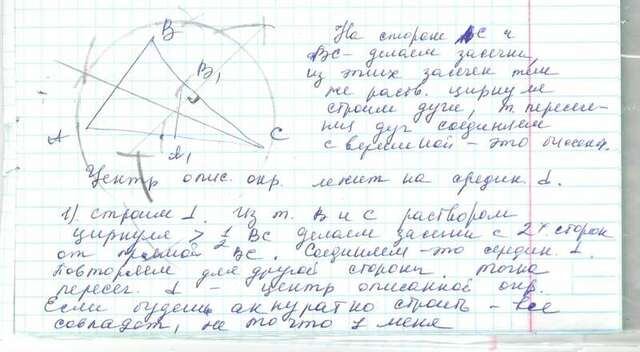 B
B₁
A
A₁
C
На стороне AC и
BC - делаем засечки,
из этих засечек тем
же раств. циркуля
строим дуги, т. пересече-
ния дуг соединяем
с вершиной - это биссект.
Центр опис. окр. лежит на средин. ⊥.
1) строим ⊥. Из т. B и C раствором
циркуля > 1/2 BC делаем засечки с 2х сторон
от прямой BC. Соединяем - это середин. ⊥.
Повторяем для другой стороны. Точка
пересеч. ⊥ - центр описанной окр.
Если будешь аккуратно строить - все
совпадёт, не то что у меня